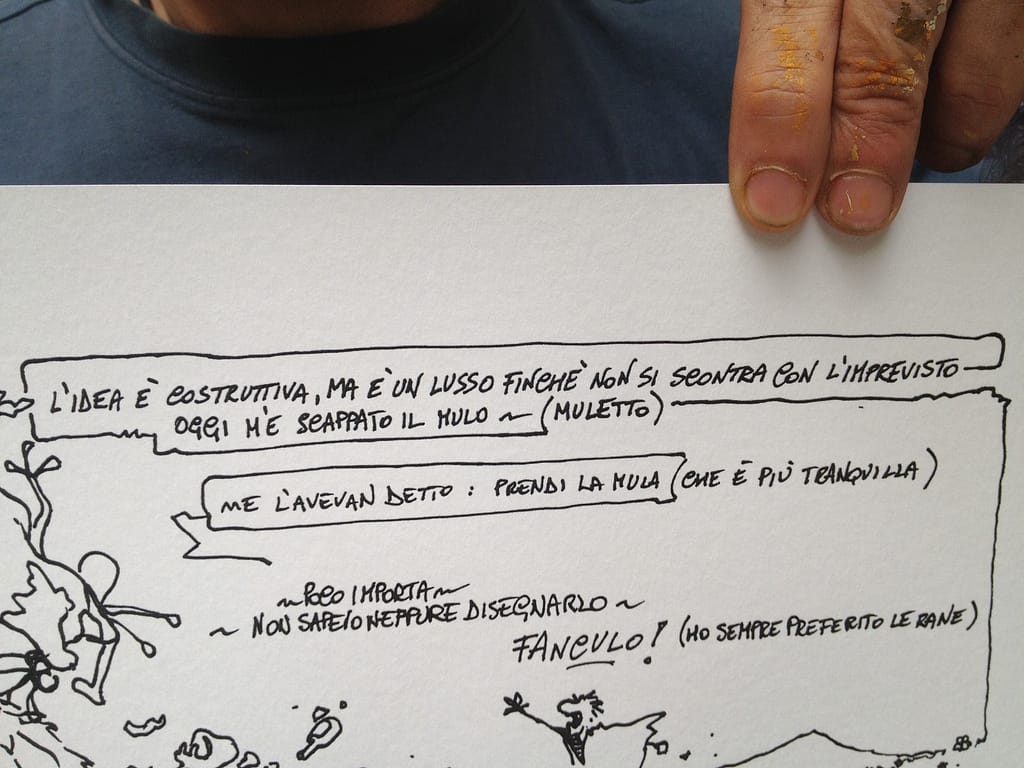 L'IDEA È COSTRUTTIVA, MA È UN LUSSO FINCHÈ NON SI SCONTRA CON L'IMPREVISTO
OGGI M'È SCAPPATO IL MULO ~ (MULETTO)
ME L'AVEVAN DETTO : PRENDI LA MULA (CHE È PIÙ TRANQUILLA)
~ POCO IMPORTA ~
~ NON SAPEVO NEPPURE DISEGNARLO ~
FANCULO! (HO SEMPRE PREFERITO LE RANE)